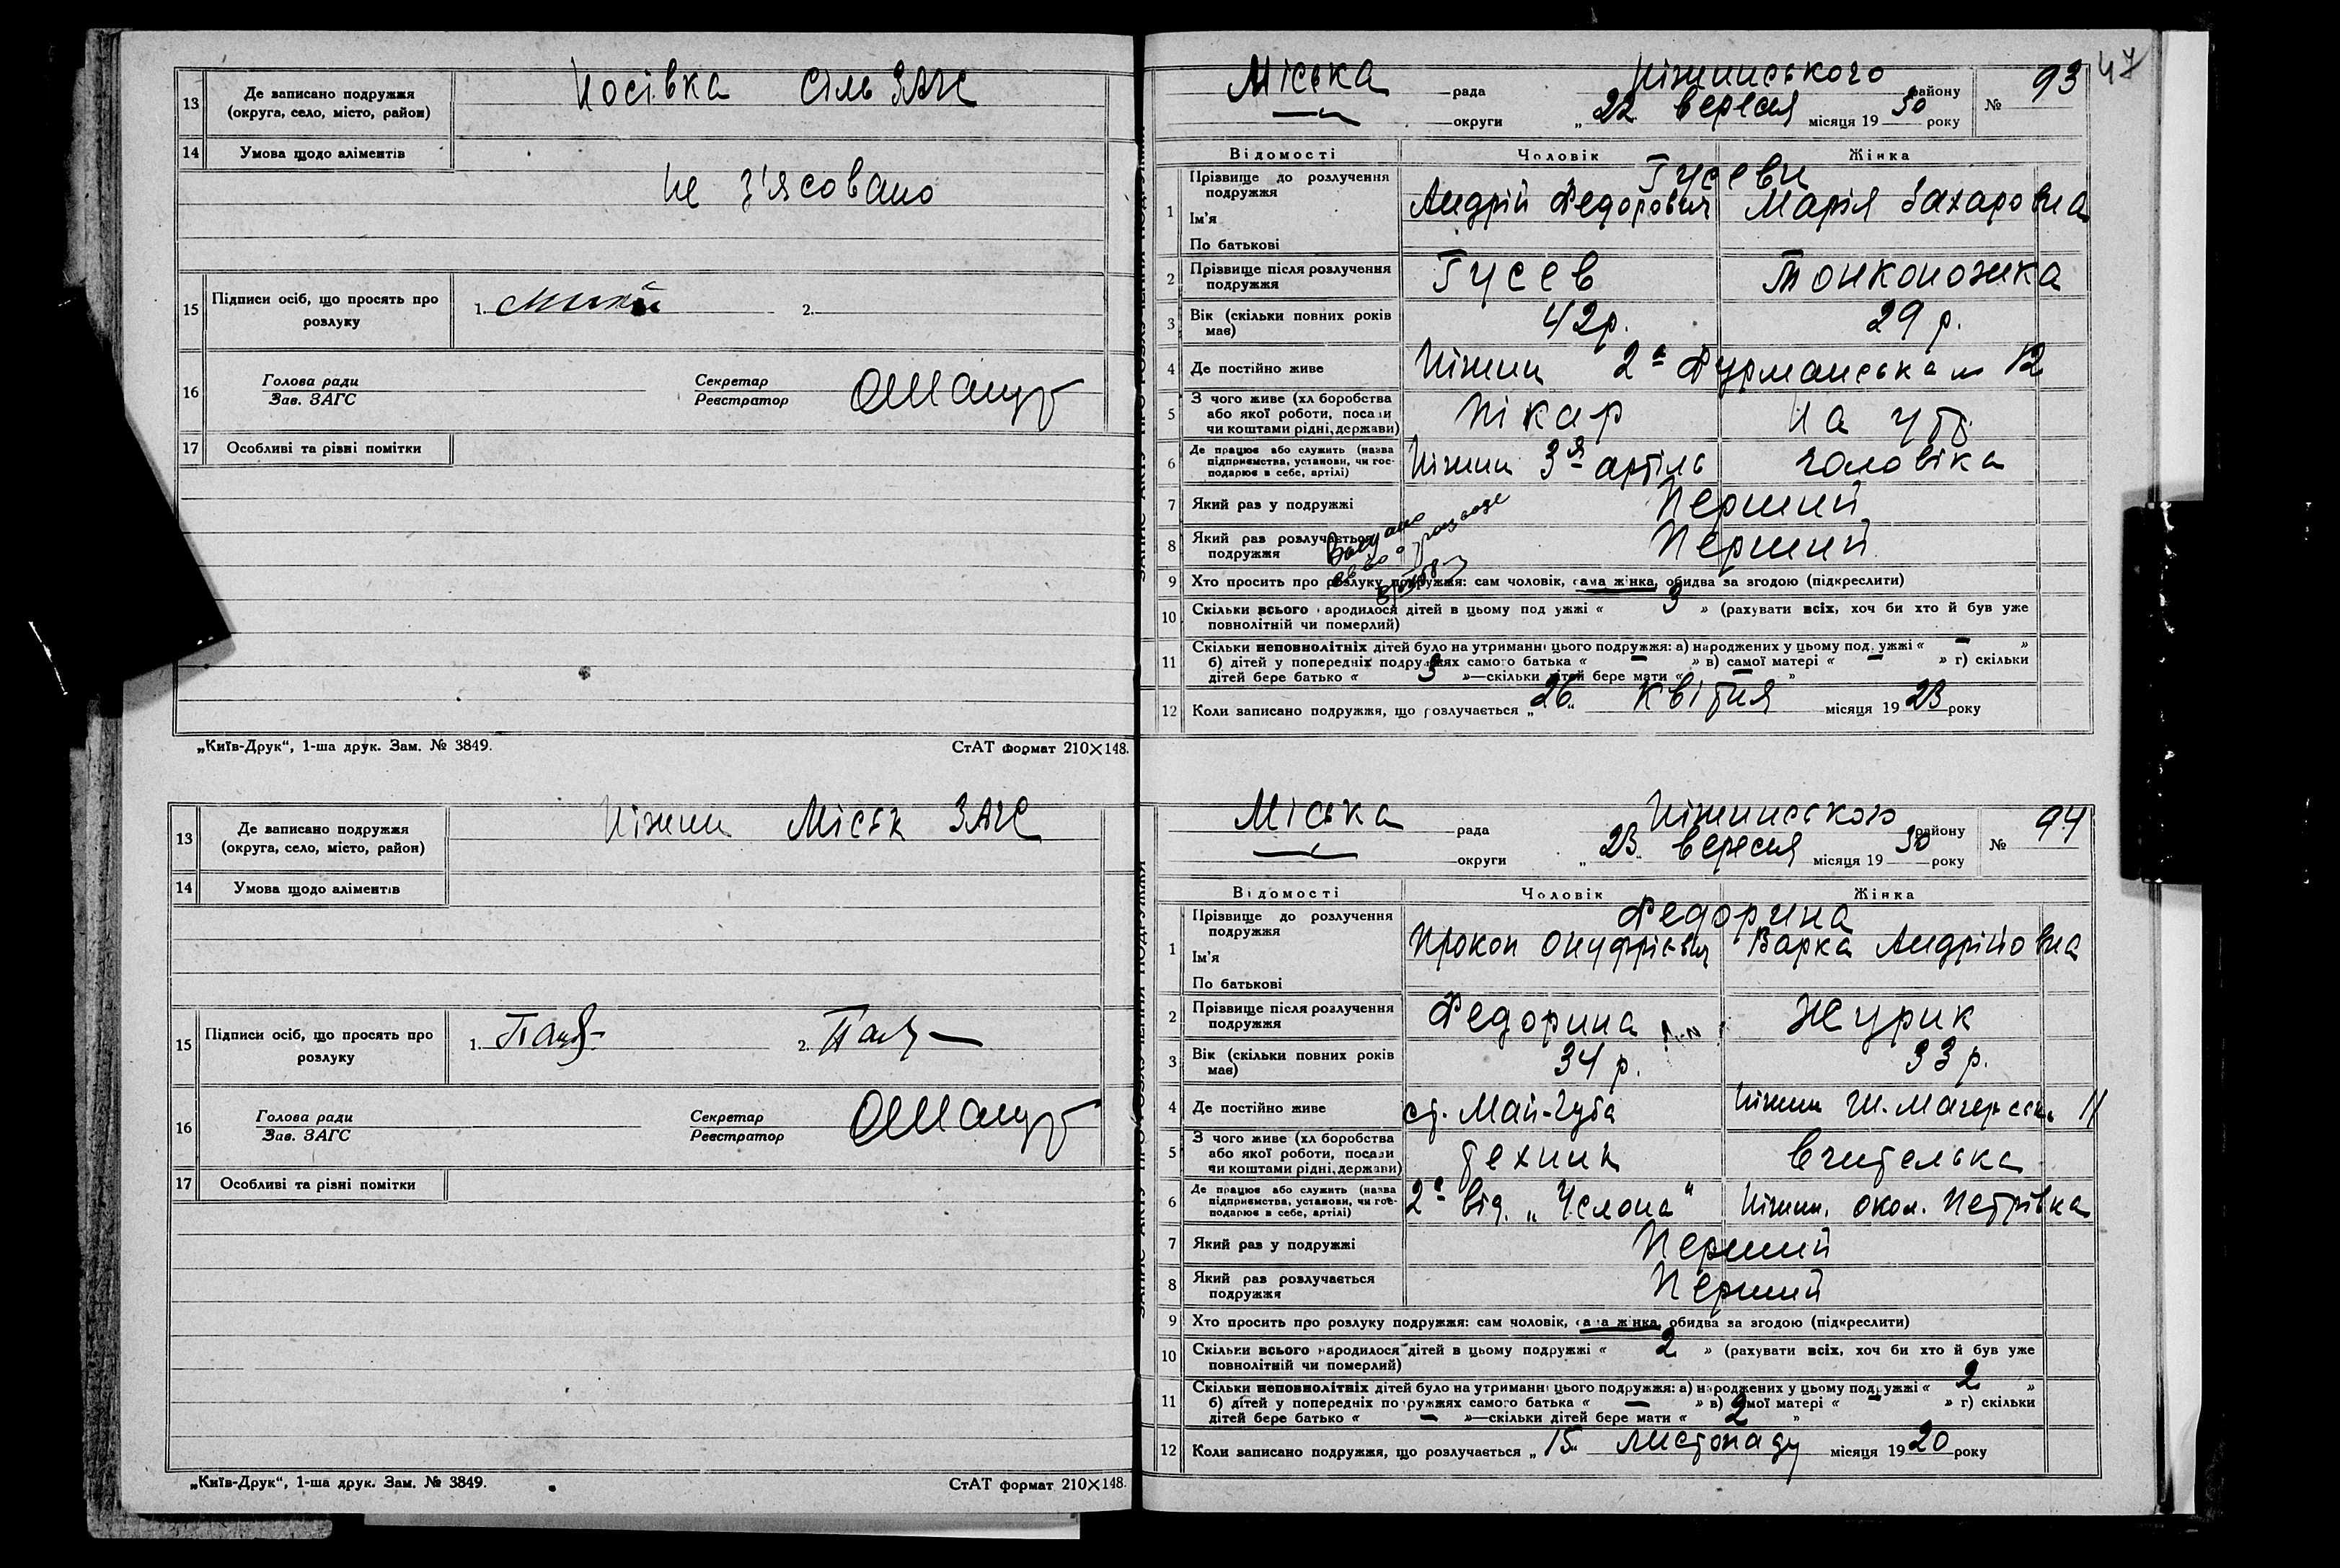 13 Де записано подружжя (округа, село, місто, район) Носівка сіль ЗАГС
14 Умова щодо аліментів
не з'ясовано
15 Підписи осіб, що просять про розлуку 1. 2.
16 Голова ради Зав. ЗАГС Секретар Реєстратор
17 Особливі та різні помітки
„Київ-Друк“, 1-ша друк. Зам. № 3849. СтАТ формат 210×148.
13 Де записано подружжя (округа, село, місто, район) Ніжин Міськ ЗАГС
14 Умова щодо аліментів
15 Підписи осіб, що просять про розлуку 1. 2.
16 Голова ради Зав. ЗАГС Секретар Реєстратор
17 Особливі та різні помітки
„Київ-Друк“, 1-ша друк. Зам. № 3849. СтАТ формат 210×148.
47
Міська рада Ніжинського району № 93
округи „22 вересня місяця 1930 року
Відомості Чоловік Жінка
1 Прізвище до розлучення подружжя Гусеви
Ім'я Андрій Федорович Марія Захаровна
По батькові
2 Прізвище після розлучення подружжя Гусев Тонконожка
3 Вік (скільки повних років має) 42 р. 29 р.
4 Де постійно живе Ніжин 2а Фурманська 12
5 З чого живе (хлiборобства або якої роботи, посади чи коштами рідні, держави) Пікар на утр.
6 Де працює або служить (назва підприємства, установи, чи господарює в себе, артілі) Ніжин 3я артіль чоловіка
7 Який раз у подружжі Перший
8 Який раз розлучається подружжя Перший
9 Хто просить про розлуку подружжя: сам чоловік, сама жінка, обидва за згодою (підкреслити)
10 Скільки всього народилося дітей в цьому подружжі « 3 » (рахувати всіх, хоч би хто й був уже повнолітній чи померлий)
11 Скільки неповнолітніх дітей було на утриманні цього подружжя: а) народжених у цьому подружжі « — »
б) дітей у попередніх подружжях самого батька « — » в) самої матері « — » г) скільки
дітей бере батько « 3 »—скільки дітей бере мати « — »
12 Коли записано подружжя, що розлучається „26“ квітня місяця 1923 року
Міська рада Ніжинського району № 94
округи „23“ вересня місяця 1930 року
Відомості Чоловік Жінка
1 Прізвище до розлучення подружжя Федорина
Ім'я Прокоп Онуфрієвич Варка Андрійовна
По батькові
2 Прізвище після розлучення подружжя Федорина Журик
3 Вік (скільки повних років має) 34 р. 33 р.
4 Де постійно живе ст. Май-Губа Ніжин 11
5 З чого живе (хлiборобства або якої роботи, посади чи коштами рідні, держави) технік вчителька
6 Де працює або служить (назва підприємства, установи, чи господарює в себе, артілі) 2е від. „Услона“ Ніжин. окол. Петрівка
7 Який раз у подружжі Перший
8 Який раз розлучається подружжя Перший
9 Хто просить про розлуку подружжя: сам чоловік, сама жінка, обидва за згодою (підкреслити)
10 Скільки всього народилося дітей в цьому подружжі « 2 » (рахувати всіх, хоч би хто й був уже повнолітній чи померлий)
11 Скільки неповнолітніх дітей було на утриманні цього подружжя: а) народжених у цьому подружжі « 2 »
б) дітей у попередніх подружжях самого батька « — » в) самої матері « — » г) скільки
дітей бере батько « — »—скільки дітей бере мати « 2 »
12 Коли записано подружжя, що розлучається „15“ листопаду місяця 1920 року